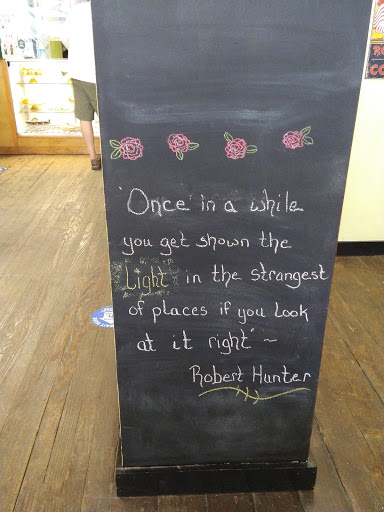 'Once in a while
you get shown the
Light in the strangest
of places if you look
at it right' ~
Robert Hunter